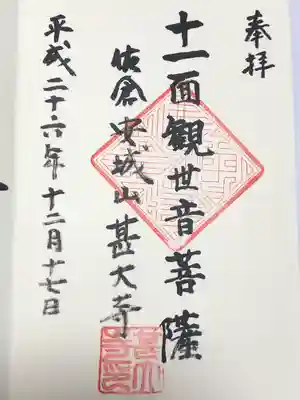 奉拝
十一面観世音菩薩
佐倉安城山甚大寺
平成二十六年十二月十七日